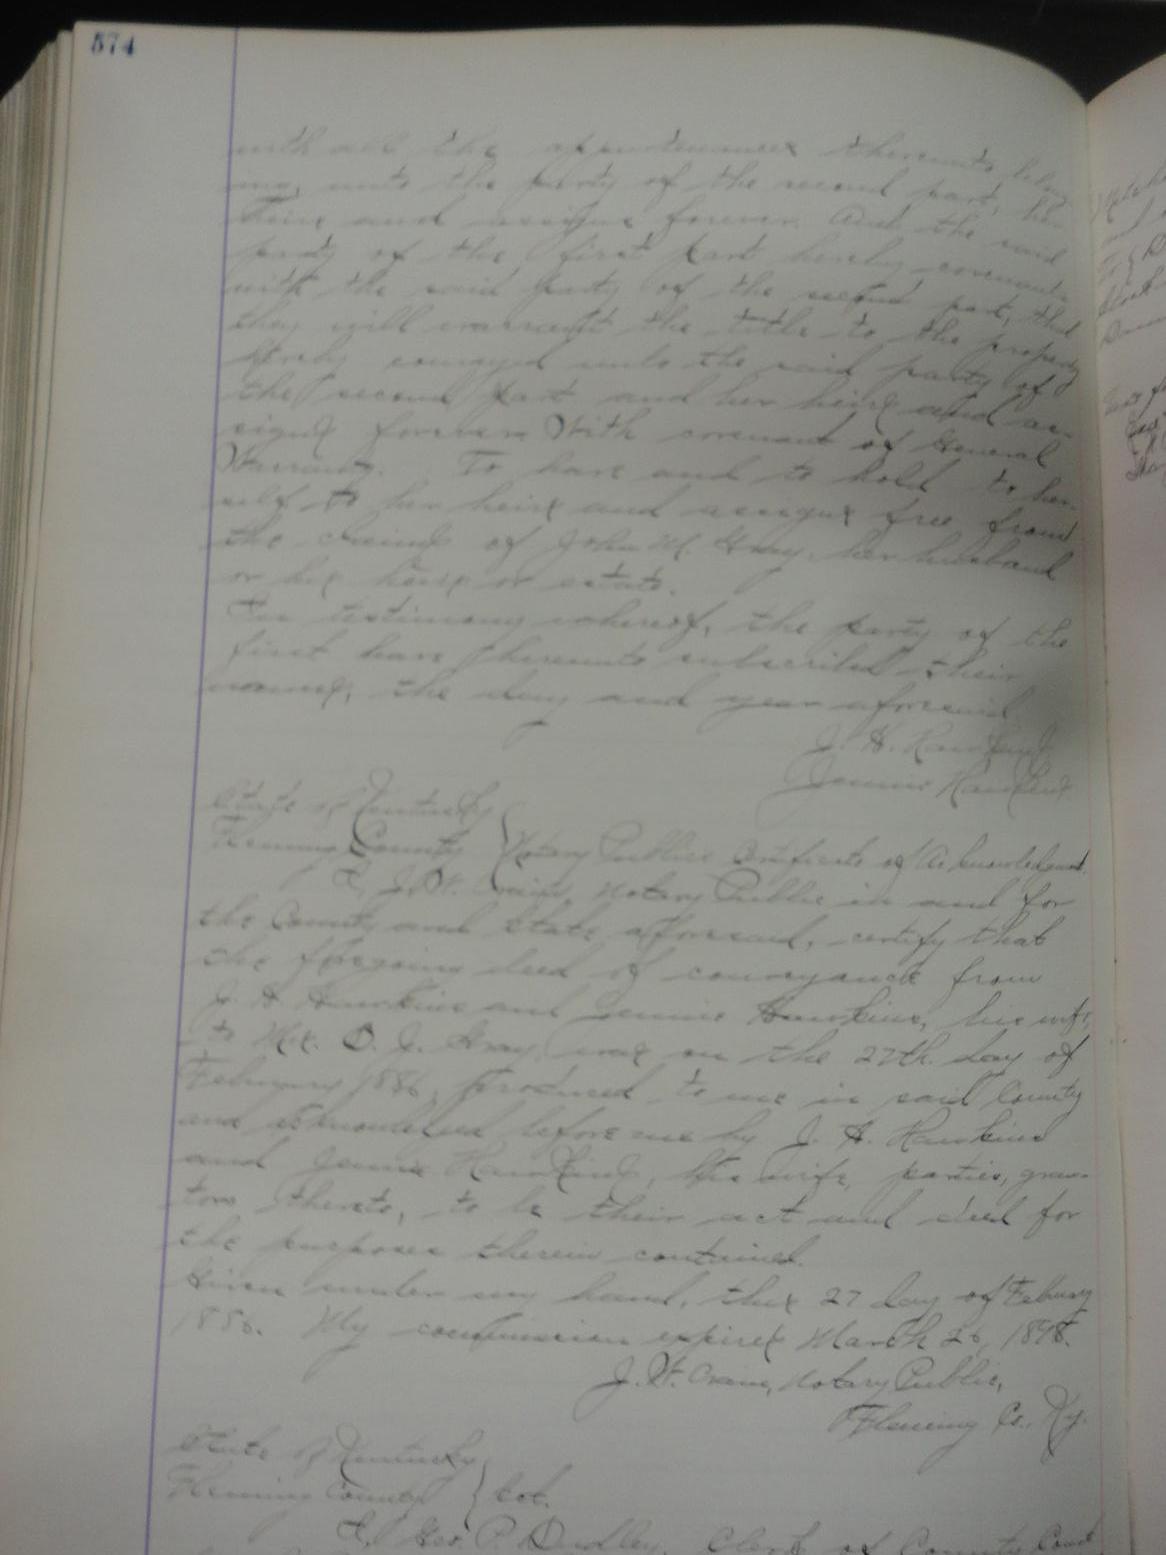 574
with all the appurtenances thereunto belong
ing, unto the party of the second part, her
heirs and assigns forever. And the said
party of the first part hereby covenants
with the said party of the second part, that
they will warrant the title to the property
hereby conveyed unto the said party of
the second part and her heirs and as-
signs forever With covenant of General
Warranty. To have and to hold to her
self to her heirs and assigns free from
the claims of John M. Gray, her husband
or his heirs or estate.
In testimony whereof, the party of the
first have hereunto subscribed their
names, the day and year aforesaid
J. H. Hawkins
Jennie Hawkins
State of Kentucky
Fleming County } Notary Publics Certificate of Acknowledgment.
I, J. W. Crain, Notary Public in and for
the County and State aforesaid, certify that
the foregoing deed of conveyance from
J. H. Hawkins and Jennie Hawkins, his wife,
to Mrs. O. J. Gray, was on the 27th. day of
February produced to me in said County
and acknowledged before me by J. H. Hawkins
and Jennie Hawkins, his wife, parties, gran-
tors thereto, to be their act and deed for
the purposes therein contained.
Given under my hand, this 27 day of
My commission expires March 26, 1898.
J. W. Crain, Notary Public,
Fleming Co. Ky.
State of Kentucky
Fleming County } Sct.
I, Geo. P. Dudley, Clerk of County Court